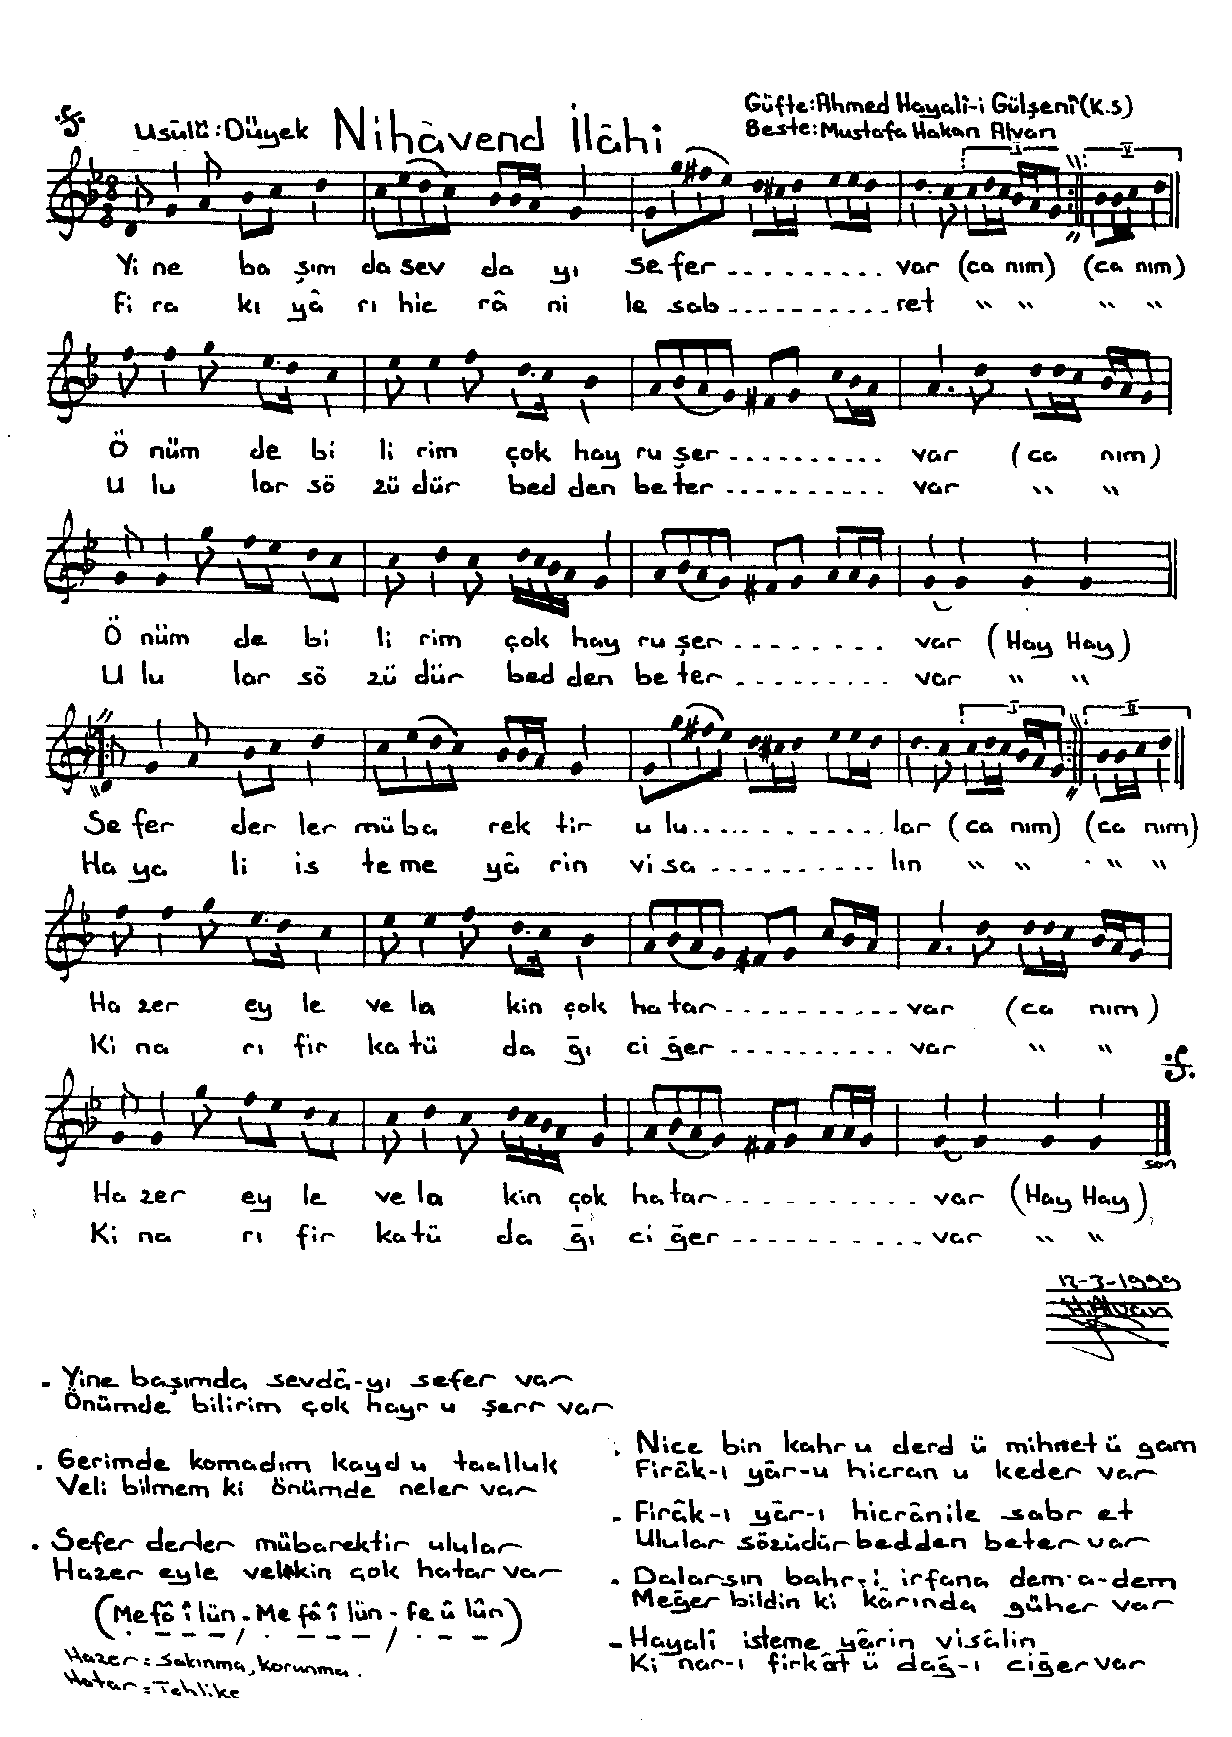 Usûlü: Düyek Nihâvend İlâhi
Güfte: Ahmed Hayalî-i Gülşenî (K.S)
Beste: Mustafa Hakan Alvan
8 8 I II
Yi ne ba şım da sev da yı se fer . . . . . . . . . . var (ca nım) (ca nım)
Fi ra kı yâ rı hic râ ni le sab . . . . . . . . . . ret " " " "
Ö nüm de bi li rim çok hay ru şer . . . . . . . . . . var (ca nım)
U lu lar sö zü dür bed den be ter . . . . . . . . . . var " "
Ö nüm de bi li rim çok hay ru şer . . . . . . . . . var (Hay Hay)
U lu lar sö zü dür bed den be ter . . . . . . . . . . var " "
I II
Se fer der ler mü ba rek tir u lu . . . . . . . . . . lar (ca nım) (ca nım)
Ha ya li is te me yâ rin vi sa . . . . . . . . . . lın " " " "
Ha zer ey le ve la kin çok ha tar . . . . . . . . . . . var (ca nım)
Ki na rı fir ka tü da ğı ci ğer . . . . . . . . . . var " "
Ha zer ey le ve la kin çok ha tar . . . . . . . . . . . var (Hay Hay)
son
Ki na rı fir ka tü da ğı ci ğer . . . . . . . . . . . var " "
12-3-1999
H.Alvan
- Yine başımda sevdâ-yı sefer var
Önümde bilirim çok hayr u şerr var
. Gerimde komadım kayd u taalluk
Veli bilmem ki önümde neler var
. Sefer derler mübarektir ulular
Hazer eyle velâkin çok hatar var
(Me fâ î lün - Me fâ î lün - Fe û lün)
( . - - - / . - - - / . - - )
Hazer = Sakınma, korunma.
Hatar = Tehlike
. Nice bin kahr u derd ü mihnet ü gam
Firâk-ı yâr-u hicran u keder var
- Firâk-ı yâr-ı hicrânile sabr et
Ulular sözüdür bedden beter var
. Dalarsın bahr-i irfana dem-a-dem
Meğer bildin ki kârında güher var
- Hayalî isteme yârin visâlin
Ki nar-ı firkât ü dağ-ı ciğer var